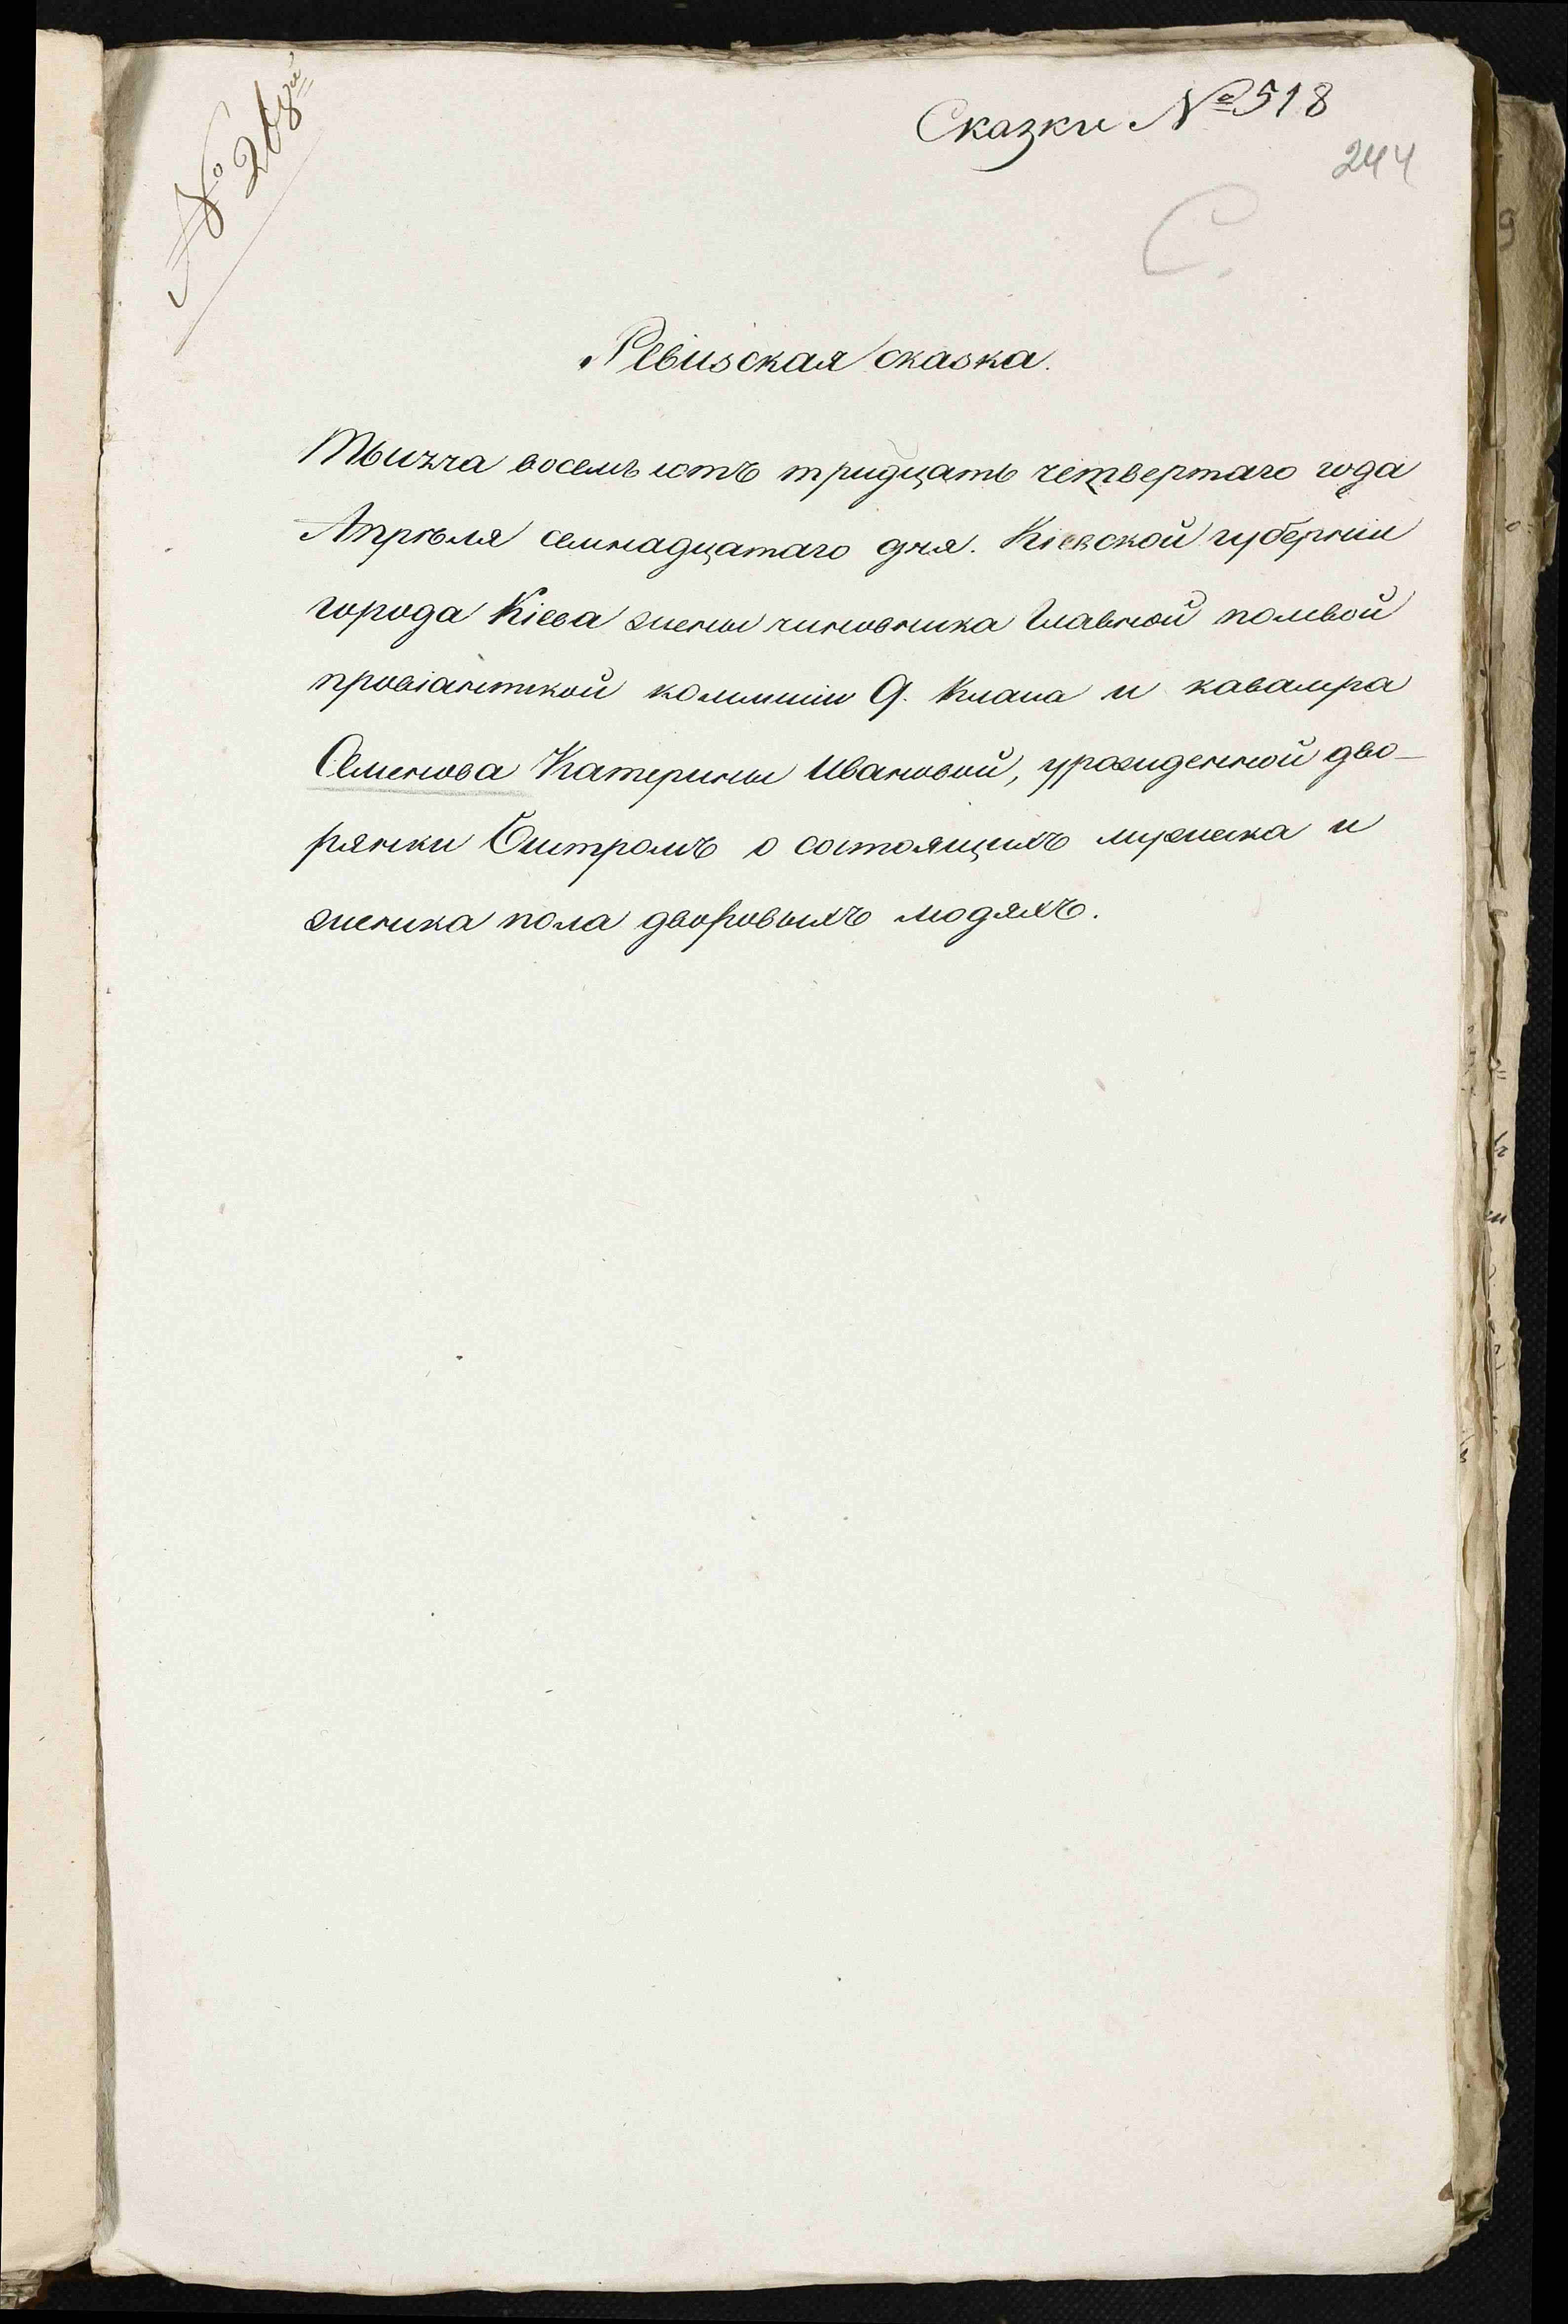 № 268й
Сказки № 518
244
С.
Ревизская сказка.
Тысяча восемь сотъ тридцать четвертаго года
Апрѣля семнадцатаго дня. Кіевской губерніи
города Кіева жены чиновника Главной полевой
провіантской коммиціи 9. Класа и кавалера
Семенова Катерины Ивановой, урожденной дво-
рянки Бистромъ о состоящихъ мужеска и
женска пола дворовыхъ людяхъ.